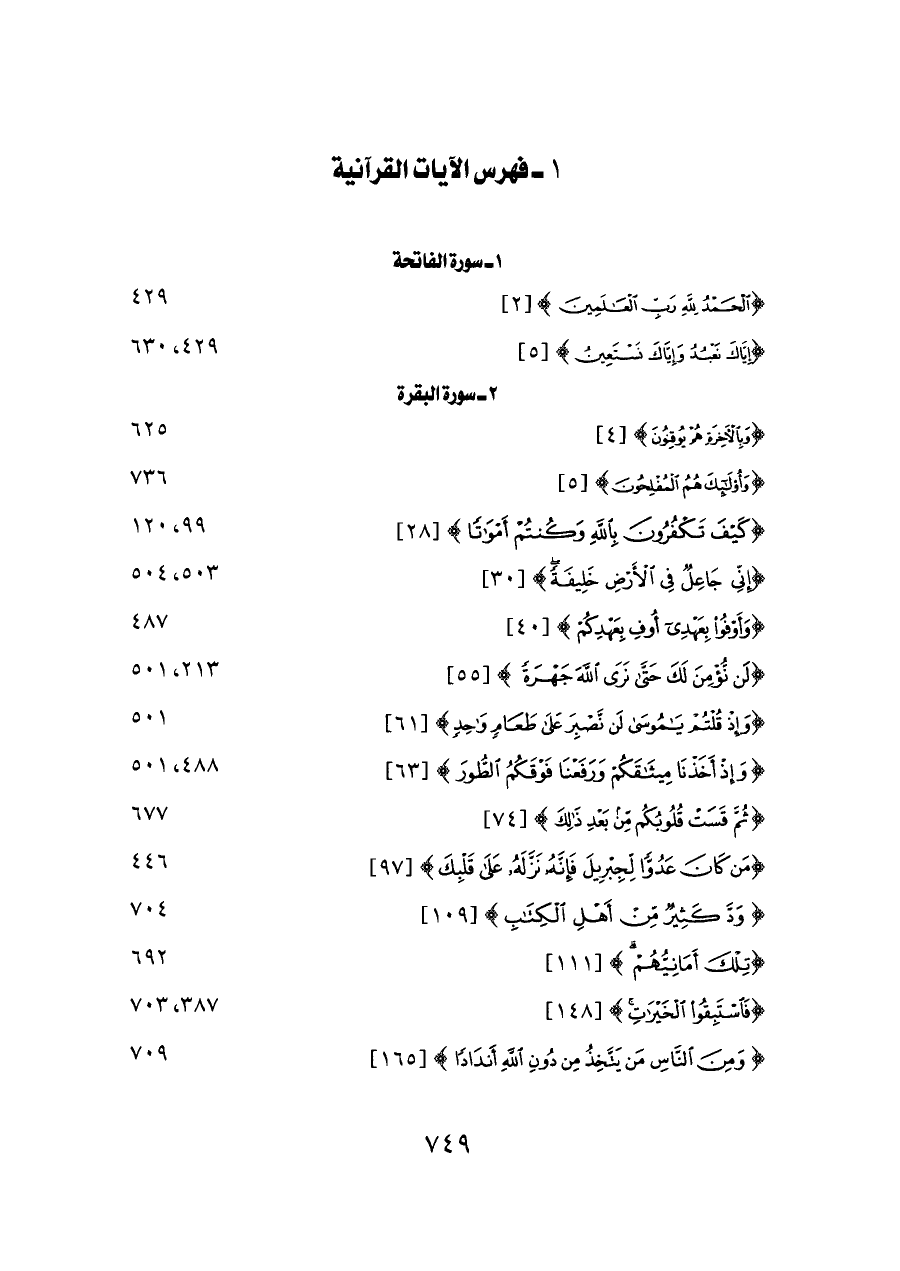 ١ - فهرس الآيات القرآنية
١ - سورة الفاتحة
﴿الْحَمْدُ لِلَّهِ رَبِّ الْعَالَمِينَ﴾ [٢] ٤٢٩
﴿إِيَّاكَ نَعْبُدُ وَإِيَّاكَ نَسْتَعِينُ﴾ [٥] ٤٢٩، ٦٣٠
٢ - سورة البقرة
﴿وَبِالْآخِرَةِ هُمْ يُوقِنُونَ﴾ [٤] ٦٢٥
﴿وَأُولَٰئِكَ هُمُ الْمُفْلِحُونَ﴾ [٥] ٧٣٦
﴿كَيْفَ تَكْفُرُونَ بِاللَّهِ وَكُنتُمْ أَمْوَٰتًا﴾ [٢٨] ٩٩، ١٢٠
﴿إِنِّي جَاعِلٌ فِي الْأَرْضِ خَلِيفَةً ۖ﴾ [٣٠] ٥٠٣، ٥٠٤
﴿وَأَوْفُوا بِعَهْدِي أُوفِ بِعَهْدِكُمْ﴾ [٤٠] ٤٨٧
﴿لَن نُّؤْمِنَ لَكَ حَتَّىٰ نَرَى اللَّهَ جَهْرَةً﴾ [٥٥] ٢١٣، ٥٠١
﴿وَإِذْ قُلْتُمْ يَٰمُوسَىٰ لَن نَّصْبِرَ عَلَىٰ طَعَامٍ وَٰحِدٍ﴾ [٦١] ٥٠١
﴿وَإِذْ أَخَذْنَا مِيثَٰقَكُمْ وَرَفَعْنَا فَوْقَكُمُ الطُّورَ﴾ [٦٣] ٤٨٨، ٥٠١
﴿ثُمَّ قَسَتْ قُلُوبُكُم مِّن بَعْدِ ذَٰلِكَ﴾ [٧٤] ٦٧٧
﴿مَن كَانَ عَدُوًّا لِّجِبْرِيلَ فَإِنَّهُۥ نَزَّلَهُۥ عَلَىٰ قَلْبِكَ﴾ [٩٧] ٤٤٦
﴿وَدَّ كَثِيرٌ مِّنْ أَهْلِ الْكِتَٰبِ﴾ [١٠٩] ٧٠٤
﴿تِلْكَ أَمَانِيُّهُمْ ۗ﴾ [١١١] ٦٩٢
﴿فَاسْتَبِقُوا الْخَيْرَٰتِ ۚ﴾ [١٤٨] ٣٨٧، ٧٠٣
﴿وَمِنَ النَّاسِ مَن يَتَّخِذُ مِن دُونِ اللَّهِ أَندَادًا﴾ [١٦٥] ٧٠٩
٧٤٩